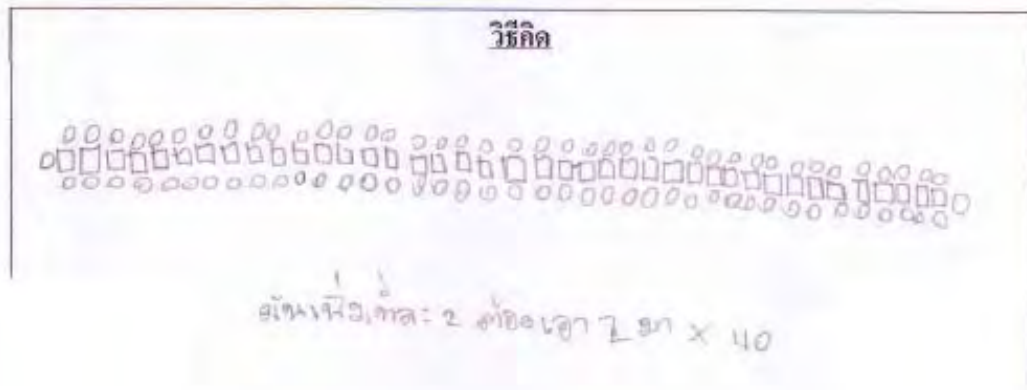 วิธีคิด
มันเพิ่มทีละ 2 ต้องเอา 2 มา × 40